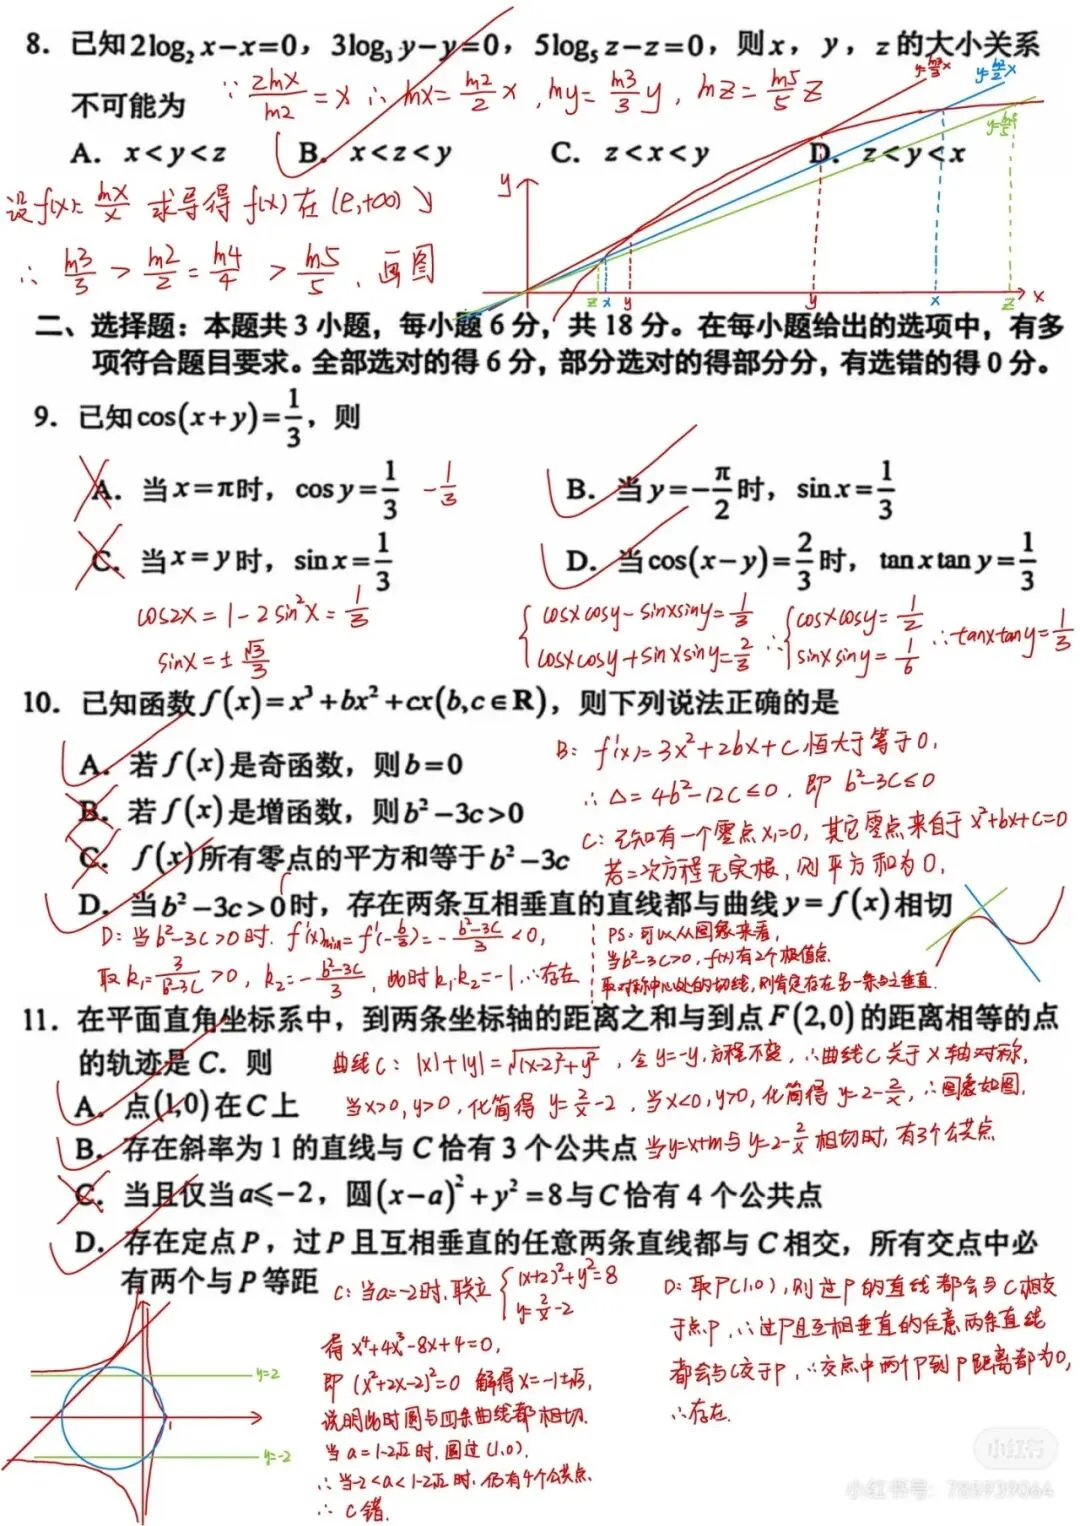 8. 已知2log₂x-x=0，3log₃y-y=0，5log₅z-z=0，则x，y，z的大小关系
不可能为
∵ 2lnx/ln2 = x ∴ lnx = ln2/2 x , lny = ln3/3 y , lnz = ln5/5 z
y=ln3/3 x
y=ln2/2 x
A. x<y<z B. x<z<y C. z<x<y D. z<y<x
设f(x)= lnx/x 求导得 f(x)在(e,+∞)↘
∴ ln3/3 > ln2/2 = ln4/4 > ln5/5 , 画图
y
z x y y x z x
二、选择题：本题共3小题，每小题6分，共18分。在每小题给出的选项中，有多
项符合题目要求。全部选对的得6分，部分选对的得部分分，有选错的得0分。
9. 已知cos(x+y)=1/3，则
A. 当x=π时，cosy=1/3 -1/3
B. 当y=-π/2时，sinx=1/3
C. 当x=y时，sinx=1/3
D. 当cos(x-y)=2/3时，tanxtany=1/3
cos2x = 1-2sin²x = 1/3
sinx = ± √3/3
{ cosxcosy-sinxsiny=1/3
cosxcosy+sinxsiny=2/3
∴ { cosxcosy=1/2
sinxsiny=1/6
∴tanxtany=1/3
10. 已知函数f(x)=x³+bx²+cx(b,c∈R)，则下列说法正确的是
A. 若f(x)是奇函数，则b=0
B. 若f(x)是增函数，则b²-3c>0
C. f(x)所有零点的平方和等于b²-3c
D. 当b²-3c>0时，存在两条互相垂直的直线都与曲线y=f(x)相切
B: f'(x)=3x²+2bx+c 恒大于等于0,
∴ Δ=4b²-12c≤0 , 即 b²-3c≤0
C: 已知有一个零点x₁=0, 其它零点来自于x²+bx+c=0
若二次方程无实根, 则平方和为0,
D: 当b²-3c>0时. f'(x)min=f'(-b/3)=-(b²-3c)/3<0,
取k₁=3/(b²-3c)>0, k₂=-(b²-3c)/3, 此时k₁·k₂=-1, ∴存在
PS: 可以从图象来看,
当b²-3c>0, f(x)有2个极值点
取对称中心处的切线, 则肯定存在另一条与之垂直.
11. 在平面直角坐标系中，到两条坐标轴的距离之和与到点F(2,0)的距离相等的点
的轨迹是C. 则
曲线C: |x|+|y|=√((x-2)²+y²), 令y=-y, 方程不变, ∴曲线C关于x轴对称,
当x>0, y>0, 化简得 y=2/x-2, 当x<0, y>0, 化简得 y=2-2/x, ∴图象如图,
A. 点(1,0)在C上
B. 存在斜率为1的直线与C恰有3个公共点
当y=x+m与y=2-2/x相切时, 有3个公共点
C. 当且仅当a≤-2，圆(x-a)²+y²=8与C恰有4个公共点
D. 存在定点P，过P且互相垂直的任意两条直线都与C相交，所有交点中必
有两个与P等距
C: 当a=-2时, 联立 { (x+2)²+y²=8
y=2/x-2
得 x⁴+4x³-8x+4=0,
即 (x²+2x-2)²=0 解得 x=-1±√3,
说明此时圆与四条曲线都相切.
当 a=1-2√2 时, 圆过(1,0).
∴ 当-2<a<1-2√2时, 仍有4个公共点
∴ C错.
D: 取P(1,0), 则过P的直线都会与C相交
于点P, ∴过P且互相垂直的任意两条直线
都会与C交于P, ∴交点中两个P到P距离都为0,
∴存在.
y=2
1
y=-2
小红书
小红书号: 785939064